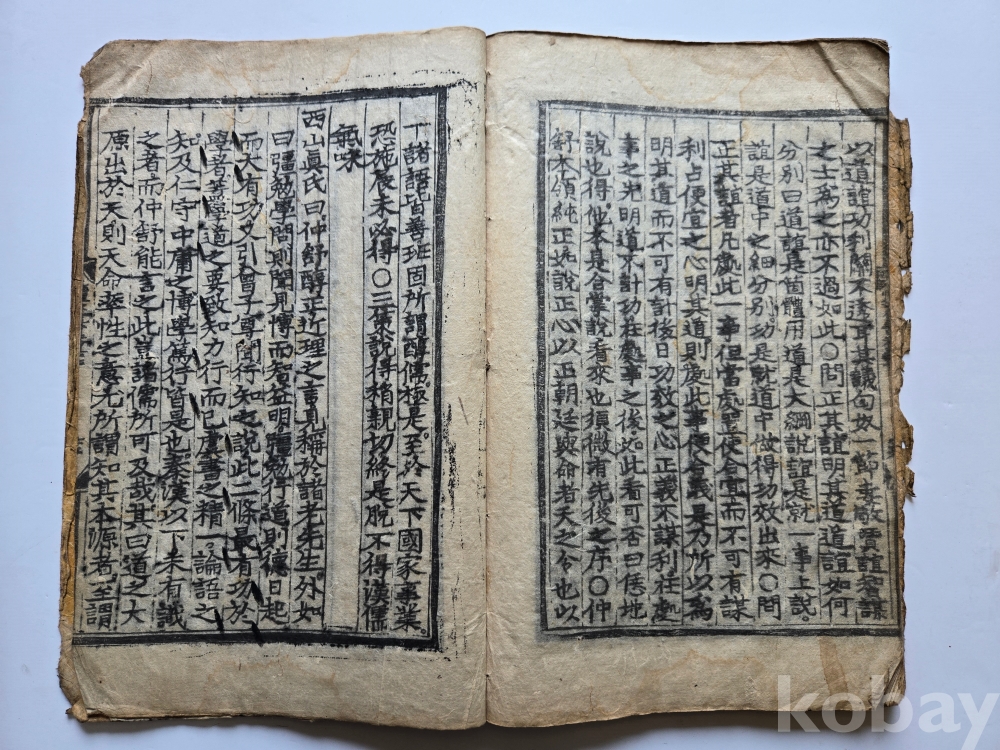 以道誼功利關不透耳其議匈奴一節婁敬賈誼智謀
之士爲之亦不過如此○問正其誼明其道道誼如何
分別曰道誼是箇體用道是大綱說誼是就一事上說。
誼是道中之細分別功是就道中做得功效出來○問
正其誼者凡處此一事但當處置使合宜而不可有謀
利占便宜之心明其道則處此事便合義是乃所以爲
明其道而不可有計後日功效之心正義不謀利在處
事之先明道不計功在處事之後如此看可否曰恁地
說也得他本是合掌說看來也須微有先後之序○仲
舒本領純正如說正心以正朝廷與命者天之令也以
下諸語皆善班固所謂醇儒極是。至於天下國家事業。
恐施展未必得○三策說得稍親切終是脫不得漢儒
氣味
西山眞氏曰仲舒醇正近理之言見稱於諸老先生。外如
曰彊勉學問則聞見博而智益明。彊勉行道則德日起
而大有功又引曾子尊聞行知之說此二條最有功於
學者蓋學道之要致知力行而已虞書之精一論語之
知及仁守中庸之博學篤行皆是也秦漢以下未有識
之者而仲舒能言之此豈諸儒所可及哉其曰道之大
原出於天則天命率性之意尤所謂知其本源者至謂
kobay